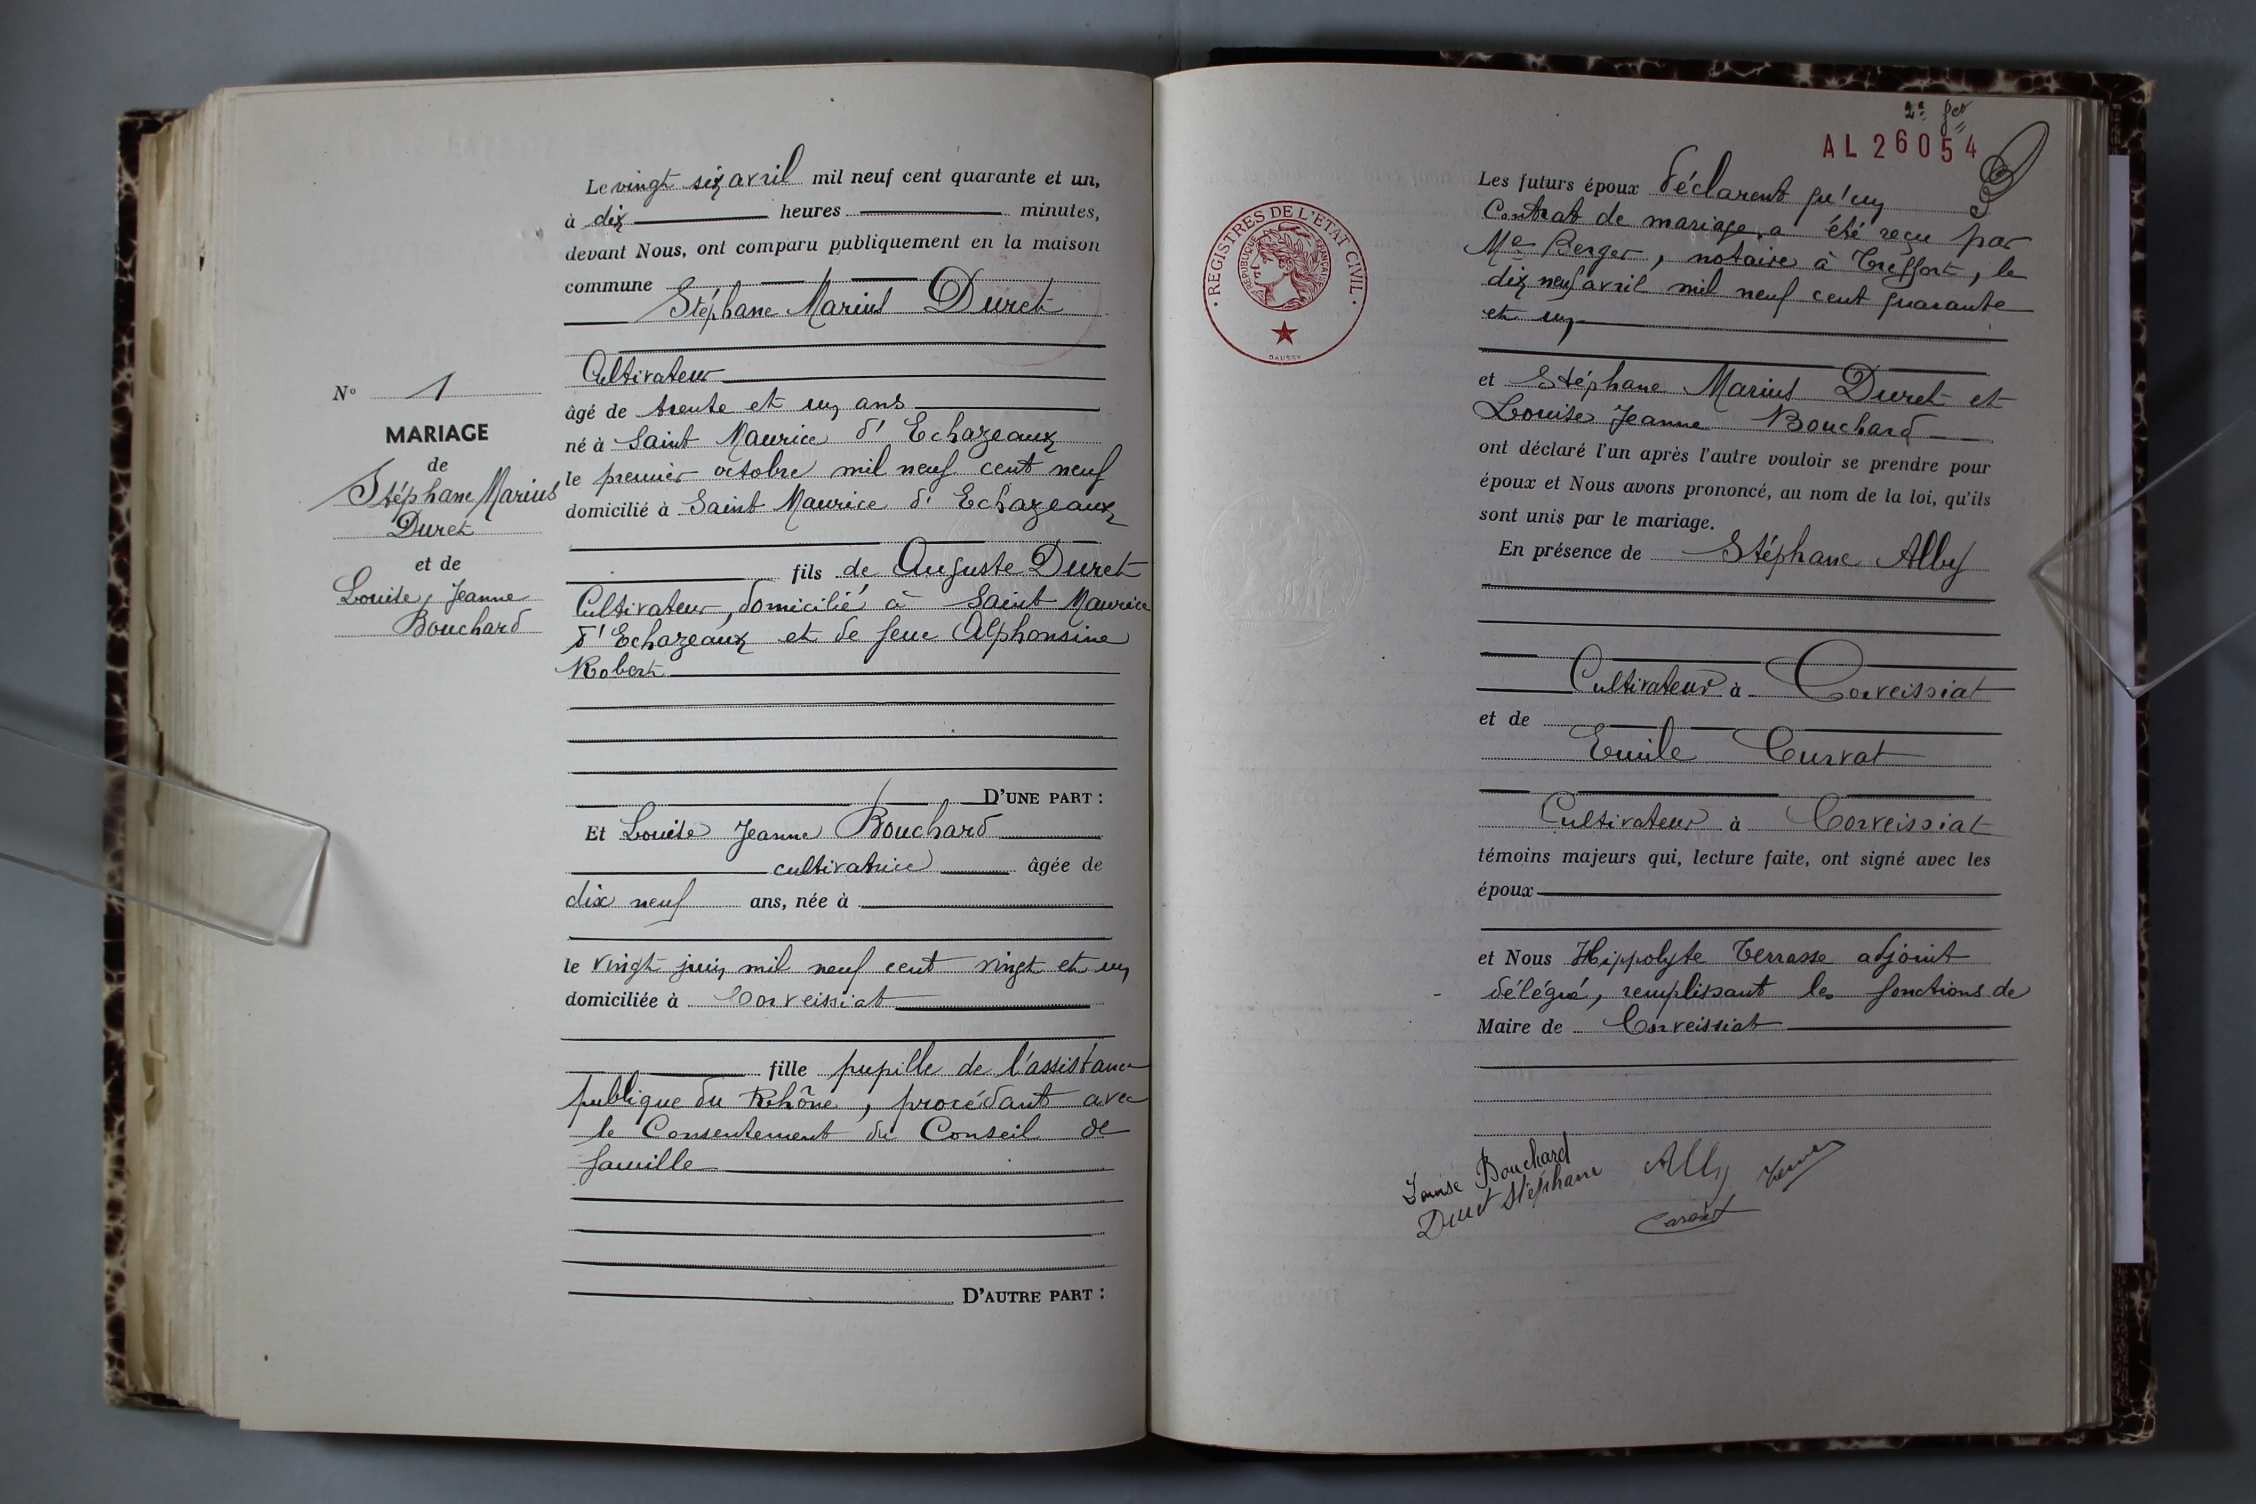 Le vingt six avril mil neuf cent quarante et un,
à dix heures minutes,
devant Nous, ont comparu publiquement en la maison
commune
Stéphane Marius Duret
Cultivateur
âgé de trente et un ans
né à Saint Maurice d'Echazeaux
le premier octobre mil neuf cent neuf
domicilié à Saint Maurice d'Echazeaux
fils de Auguste Duret
Cultivateur, domicilié à Saint Maurice
d'Echazeaux et de feue Alphonsine
Robert
D'UNE PART :
Et Louise Jeanne Bouchard
cultivatrice âgée de
dix neuf ans, née à
le vingt juin mil neuf cent vingt et un
domiciliée à Corveissiat
fille pupille de l'assistance
publique du Rhône, procédant avec
le Consentement du Conseil de
famille
D'AUTRE PART :
N° 1
MARIAGE
de
Stéphane Marius
Duret
et de
Louise, Jeanne
Bouchard
2e
AL 26054
REGISTRES DE L'ETAT CIVIL
REPUBLIQUE FRANÇAISE
DAUSSY
Les futurs époux déclarent qu'un
Contrat de mariage a été reçu par
Me Berger, notaire à Treffort, le
dix neuf avril mil neuf cent quarante
et un
et Stéphane Marius Duret et
Louise Jeanne Bouchard
ont déclaré l'un après l'autre vouloir se prendre pour
époux et Nous avons prononcé, au nom de la loi, qu'ils
sont unis par le mariage.
En présence de Stéphane Alby
Cultivateur à Corveissiat
et de
Emile Curvat
Cultivateur à Corveissiat
témoins majeurs qui, lecture faite, ont signé avec les
époux
et Nous Hippolyte Terrasse adjoint
délégué, remplissant les fonctions de
Maire de Corveissiat
Louise Bouchard
Duret Stéphane